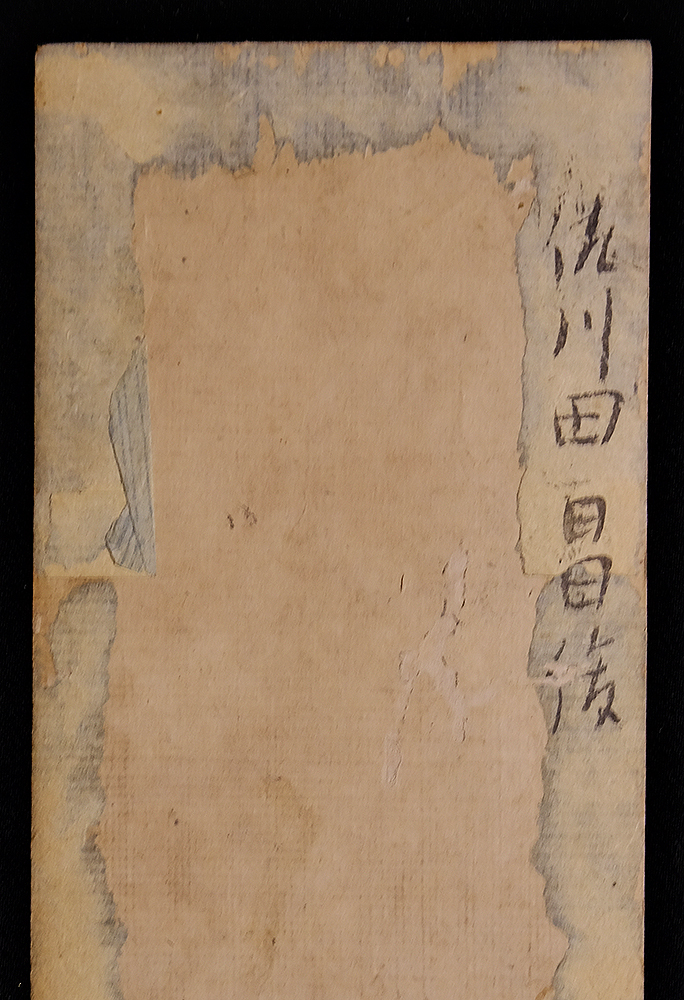 佐川田昌俊